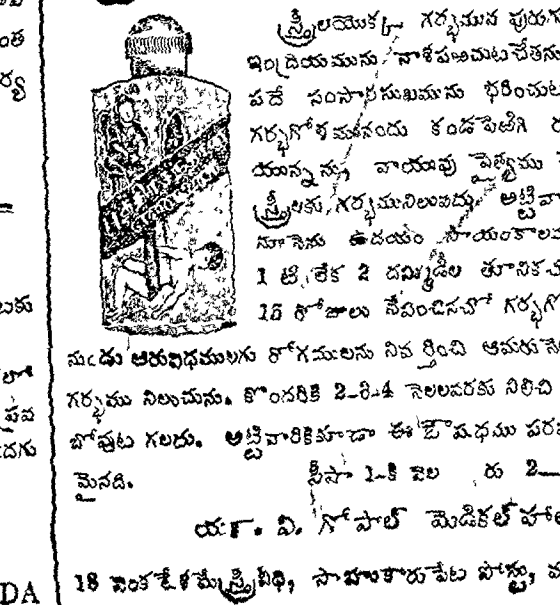 స్త్రీలయొక్క గర్భమున పురుగు
ఇంద్రియమును నాశపఱచుటచేతను
పదే సంసారసుఖమును భరించుట
గర్భగోళమునందు కండపెఱిగి
యున్నన్ను వాయువు పైత్యము
స్త్రీలకు గర్భమునిలువదు. అట్టివా
నూనెను ఉదయం సాయంకాలవ
1 టి, లేక 2 దమ్మిడీల తూనికచొ
15 రోజులు సేవించినచో గర్భగో
నుఁడు ఆరువిధములగు రోగములను నివర్తించి ఆమరునె
గర్భము నిలుచును. కొందరికి 2-3-4 నెలలవరకు నిలిచి
బోవుట గలదు. అట్టివారికికూడా ఈ ఔషధము పర
మైనది.
సీసా 1-కి వెల రు 2—
యస్. వి. గోపాల్ మెడికల్ హాల
18 వెంకటేశమేస్త్రీవీధి, సాహుకారుపేట పోస్టు,
ంత
ర్య
లుకు
లో
ప్రవ
దగు
DA